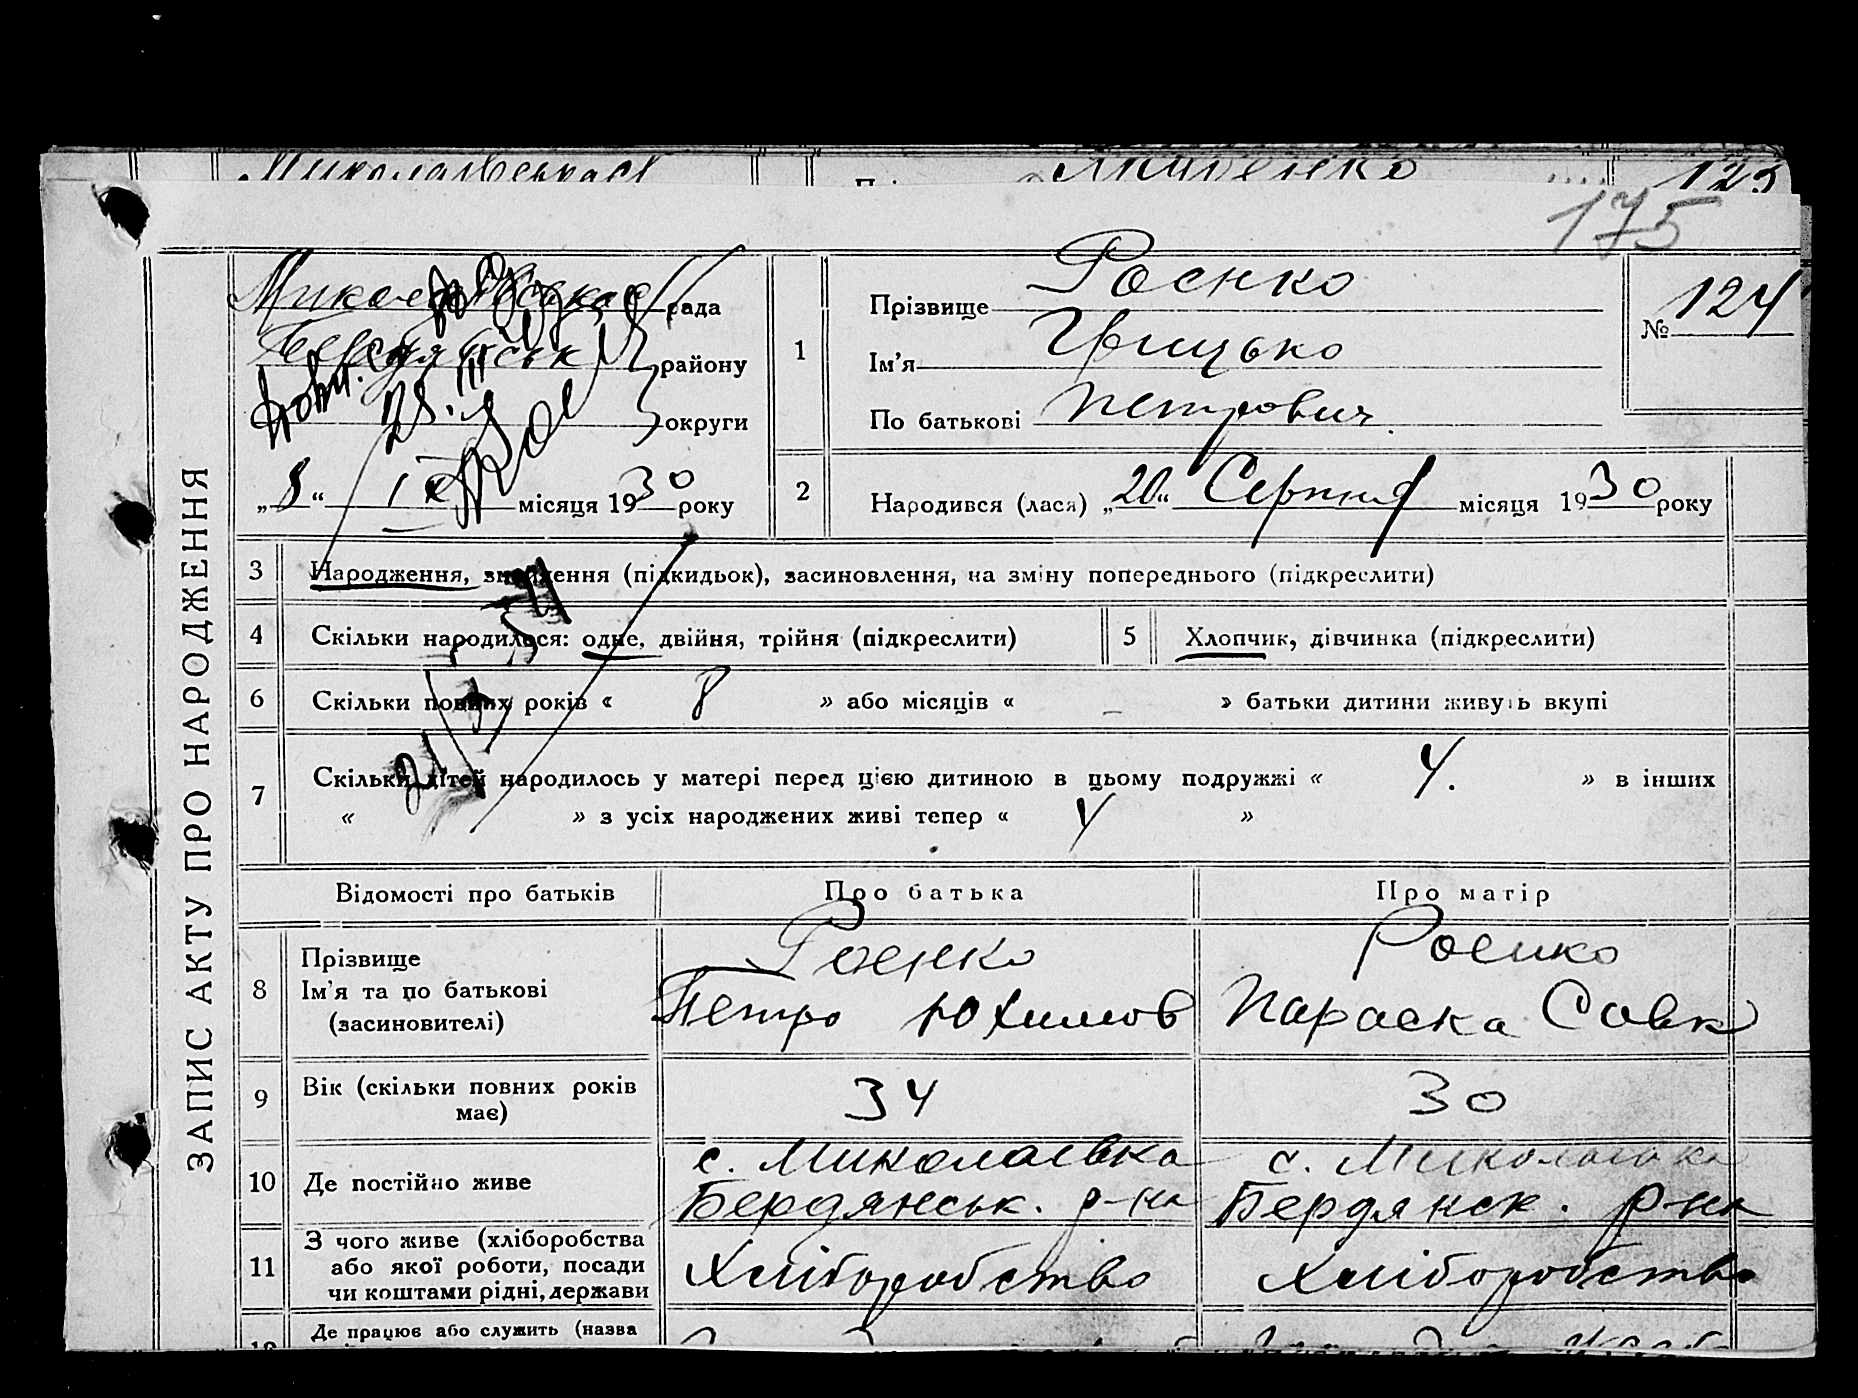 Миколаївська
123
175
ЗАПИС АКТУ ПРО НАРОДЖЕННЯ
Миколаївська рада
Бердянськ району
округи
„8“ IX місяця 1930 року
1
Прізвище Роєнко
Ім'я Грицько
По батькові Петрович
№ 124
2
Народився (лася) „20“ Серпня місяця 1930 року
3 Народження, знайдення (підкидьок), засиновлення, на зміну попереднього (підкреслити)
4 Скільки народилося: одне, двійня, трійня (підкреслити)
5 Хлопчик, дівчинка (підкреслити)
6 Скільки повних років « 8 » або місяців « – » батьки дитини живуть вкупі
7 Скільки дітей народилось у матері перед цією дитиною в цьому подружжі « 4. » в інших
« » з усіх народжених живі тепер « 4 »
Відомості про батьків Про батька Про матір
8 Прізвище Роенко Роенко
Ім'я та по батькові Петро Юхимов Параска Савк
(засиновителі)
9 Вік (скільки повних років має) 34 30
10 Де постійно живе с. Миколаївка с. Миколаївка
Бердянськ. р-на Бердянск. р-на
11 З чого живе (хліборобства
або якої роботи, посади Хліборобство Хліборобство
чи коштами рідні, держави
Де працює або служить (назва